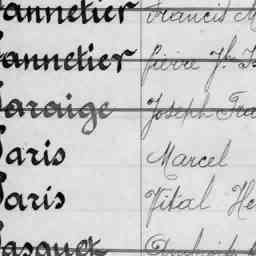 annetier Francis M
annetier Pierre Jn
araige Joseph Fra
aris Marcel
aris Vital He
asquet